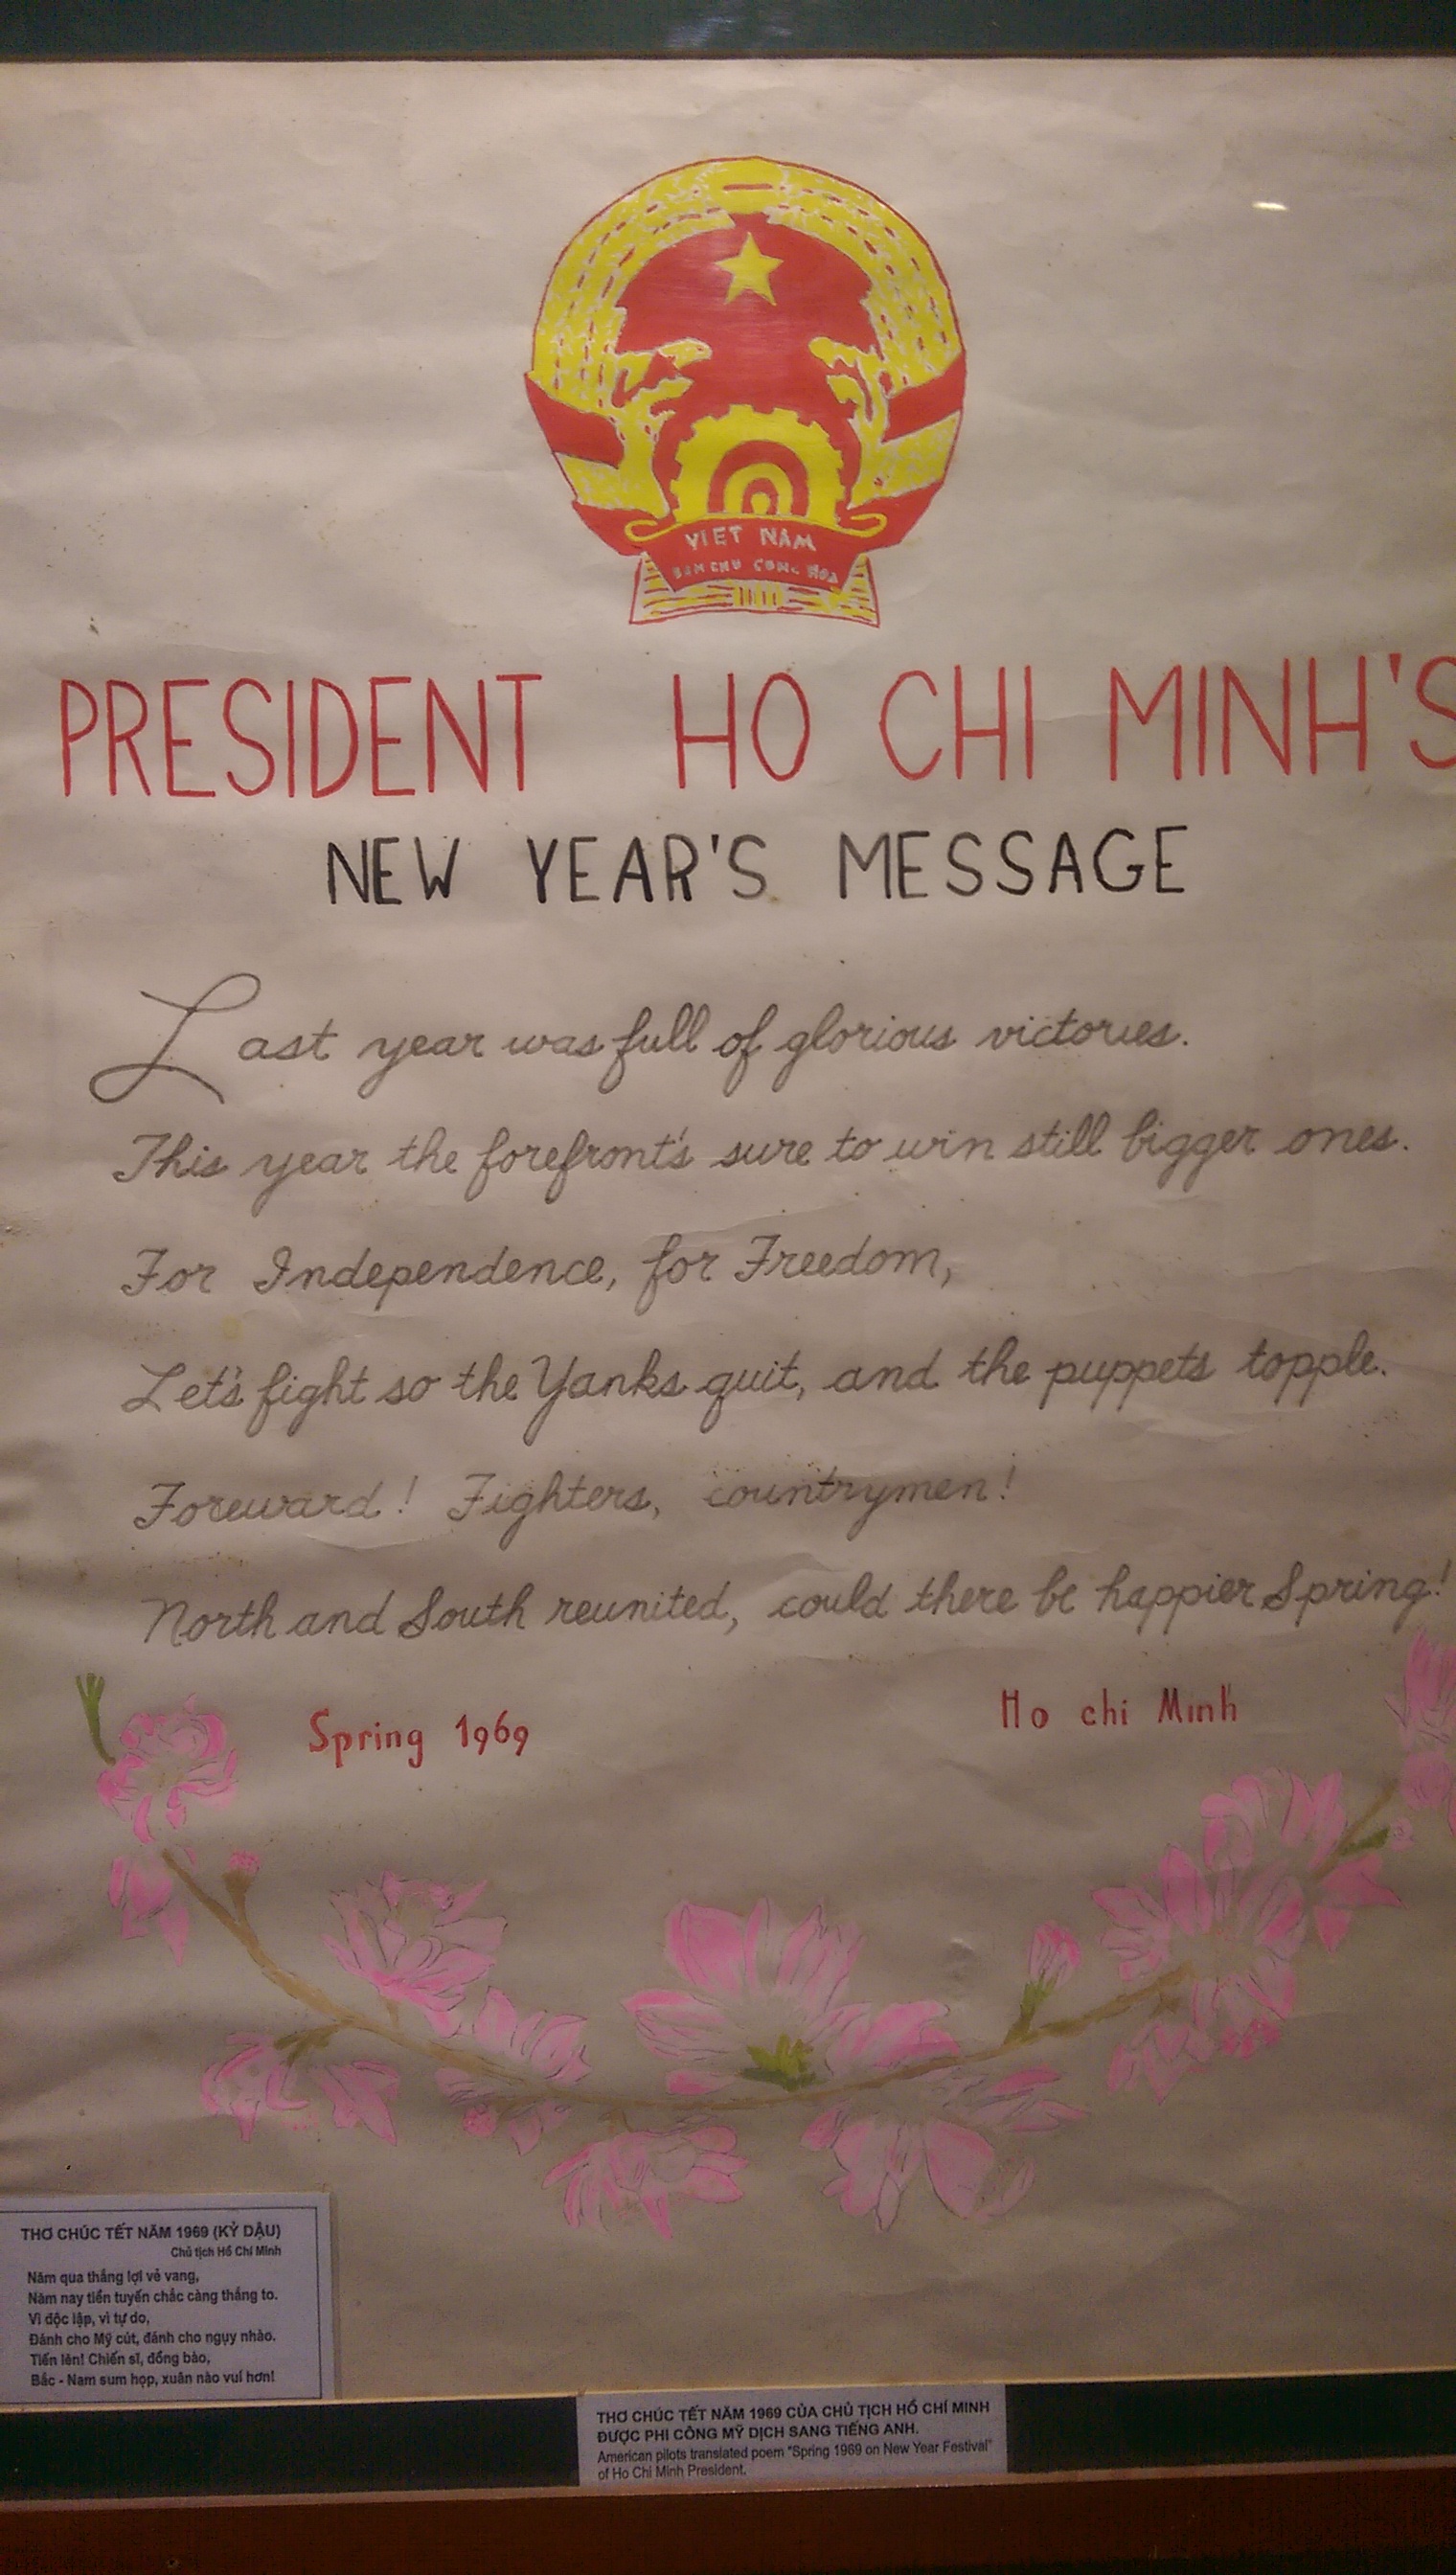 VIET NAM
DAN CHU CONG HOA
PRESIDENT HO CHI MINH'S
NEW YEAR'S MESSAGE
Last year was full of glorious victories.
This year the forefront's sure to win still bigger ones.
For Independence, for Freedom,
Let's fight so the Yanks quit, and the puppets topple.
Foreward! Fighters, countrymen!
North and South reunited, could there be happier Spring!
Spring 1969
Ho chi Minh
THƠ CHÚC TẾT NĂM 1969 (KỶ DẬU)
Chủ tịch Hồ Chí Minh
Năm qua thắng lợi vẻ vang,
Năm nay tiền tuyến chắc càng thắng to.
Vì độc lập, vì tự do,
Đánh cho Mỹ cút, đánh cho ngụy nhào.
Tiến lên! Chiến sĩ, đồng bào,
Bắc - Nam sum họp, xuân nào vui hơn!
THƠ CHÚC TẾT NĂM 1969 CỦA CHỦ TỊCH HỒ CHÍ MINH
ĐƯỢC PHI CÔNG MỸ DỊCH SANG TIẾNG ANH.
American pilots translated poem "Spring 1969 on New Year Festival"
of Ho Chi Minh President.